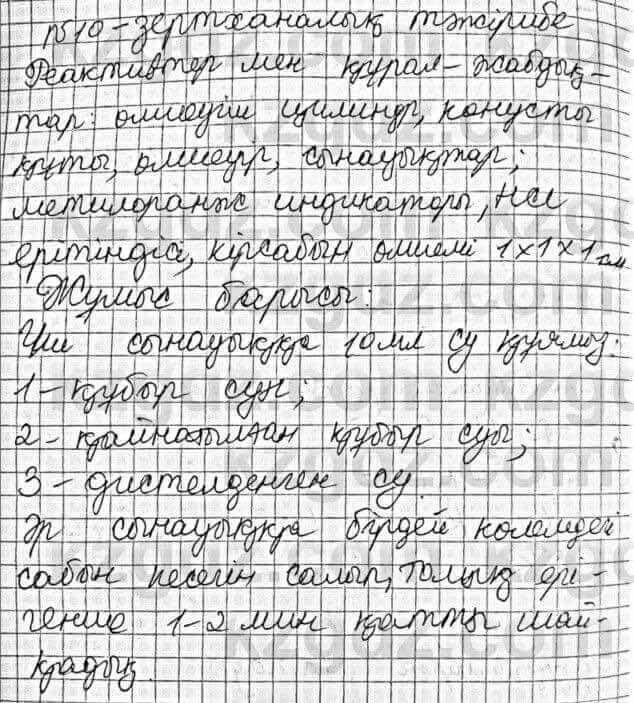 №10-зертханалық тәжірибе
Реактивтер мен құрал-жабдық-
тар: өлшеуіш цилиндр, конусты
құты, өлшеуіш, сынауықтар;
метилоранж индикаторы, HCl
ерітіндісі, кірсабын өлшемі 1×1×1 см
Жұмыс барысы:
Үш сынауыққа 10 мл су құямыз:
1-құбыр суы;
2-қайнатылған құбыр суы;
3-дистелденген су.
Әр сынауыққа бірдей көлемдегі
сабын кесегін салып, толық ері-
генше 1-2 мин қатты шай-
қадық.